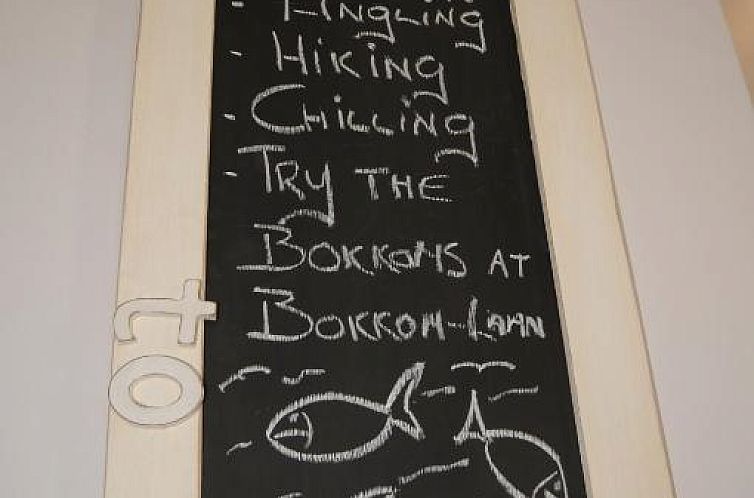 - HIKING
- CHILLING
- TRY THE
BOKKOMS AT
BOKKOM-LAAN
to